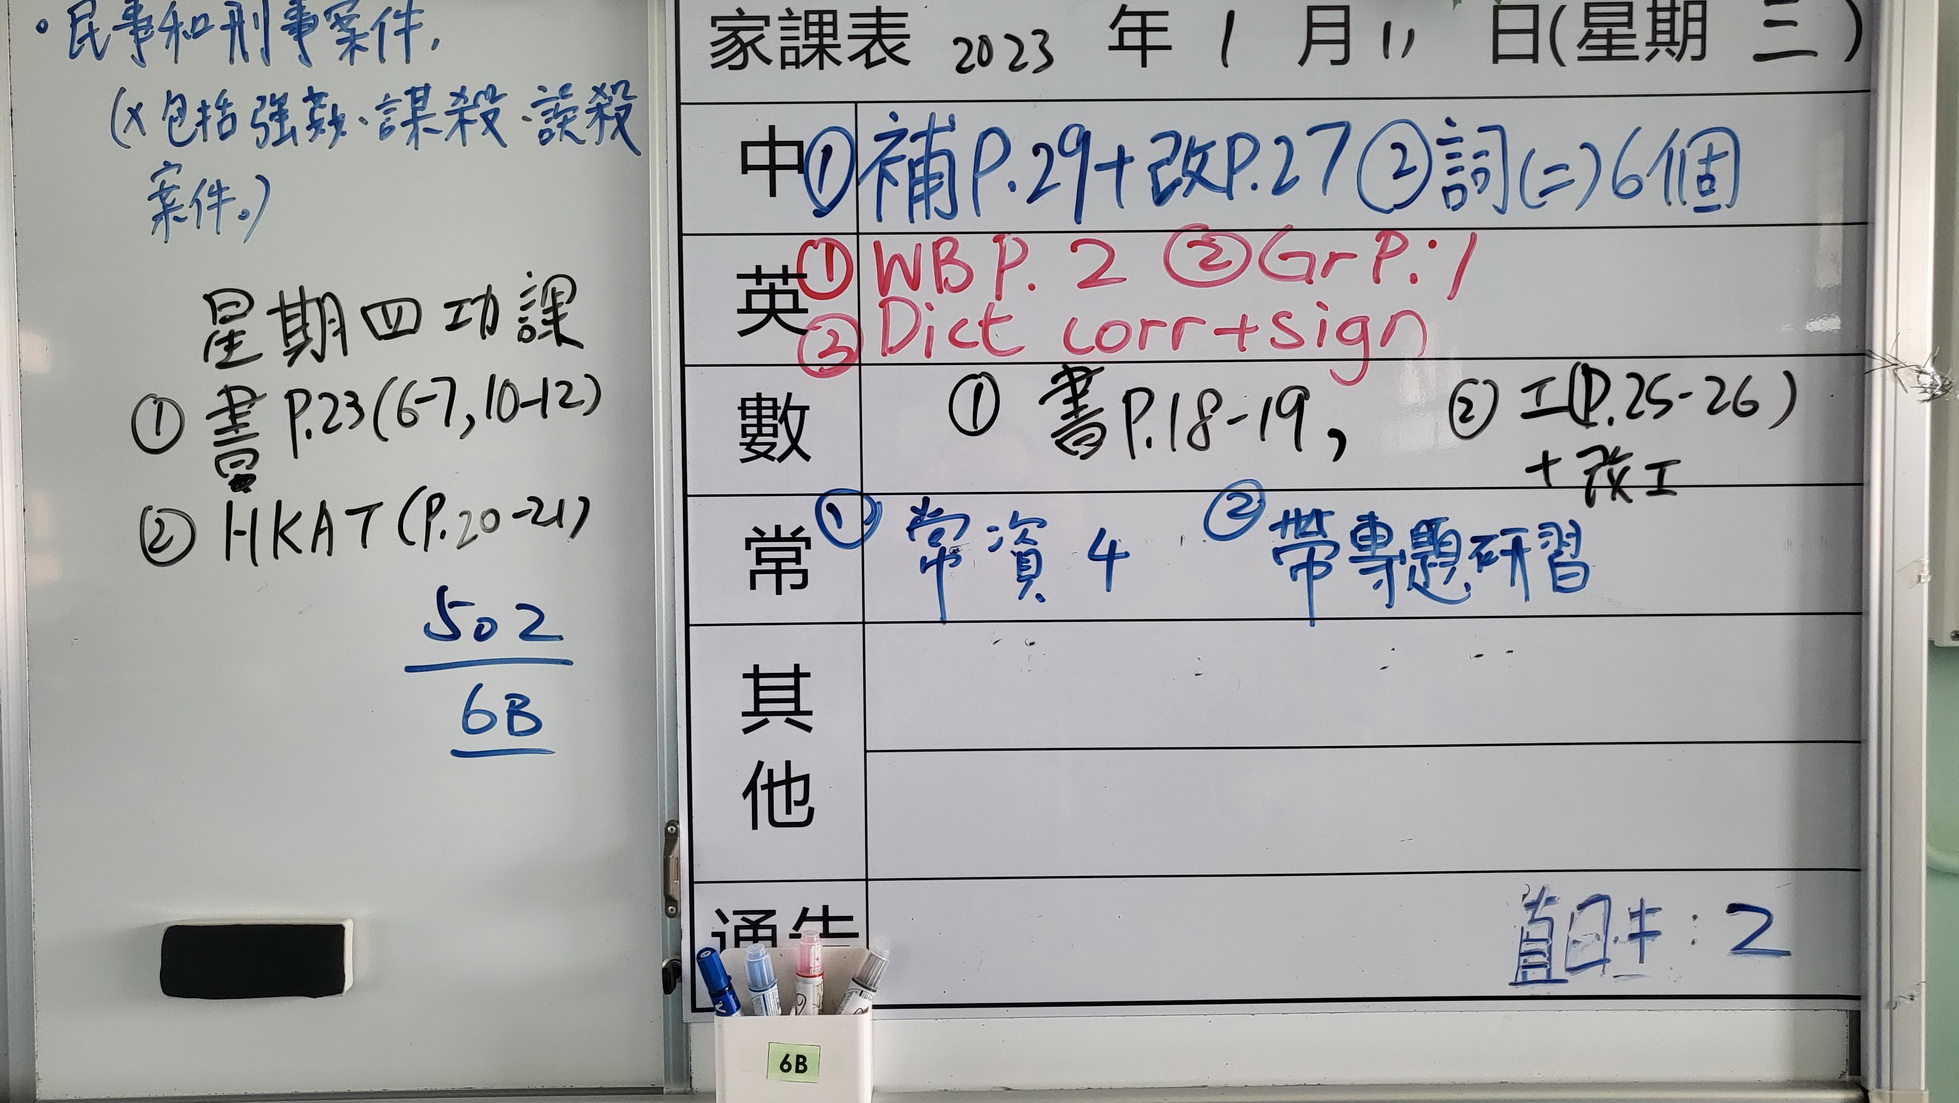 ·民事和刑事案件,
(x包括強姦、謀殺、誤殺
案件。)
星期四功課
① 書 P.23(6-7,10-12)
② HKAT (P.20-21)
502
6B
家課表 2023 年 1 月 11 日(星期 三)
中 ①補P.29+改P.27 ②詞(二)6個
英 ①WB P. 2 ②Gr P.:1
③Dict corr+sign
數 ① 書P.18-19, ② 工(P.25-26)
+ 改工
常 ① 常資 4 ② 帶專題研習
其
他
通告
直日生:2
6B